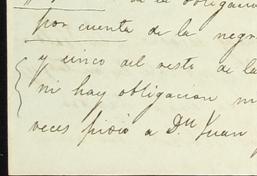 de la obligacion
por cuenta de la negr
y cinco del resto de la
ni hay obligacion n
veces pidió a Dn Juan